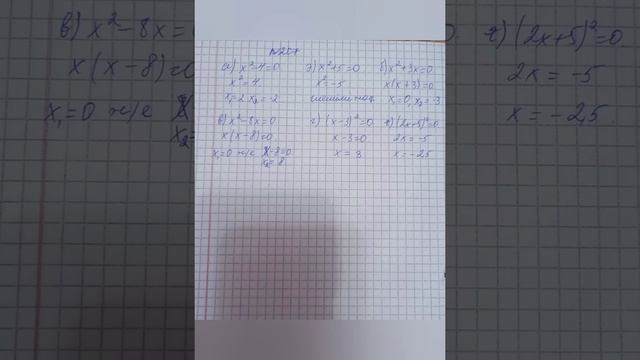 №207
а) x²-4=0
x²=4
x₁=2 x₂=-2
x²+5=0
x²=-5
б) x²+3x=0
x(x+3)=0
x₁=0, x₂=-3
в) x²-8x=0
x(x-8)=0
x₁=0 x-8=0
x₂=8
г) (x-3)²=0
x-3=0
x=3
(2x+5)²=0
2x=-5
x=-2,5
в) x²-8x=
x(x-8)=0
x₁=0
x₂=
(2x+5)²=0
2x=-5
x=-2,5